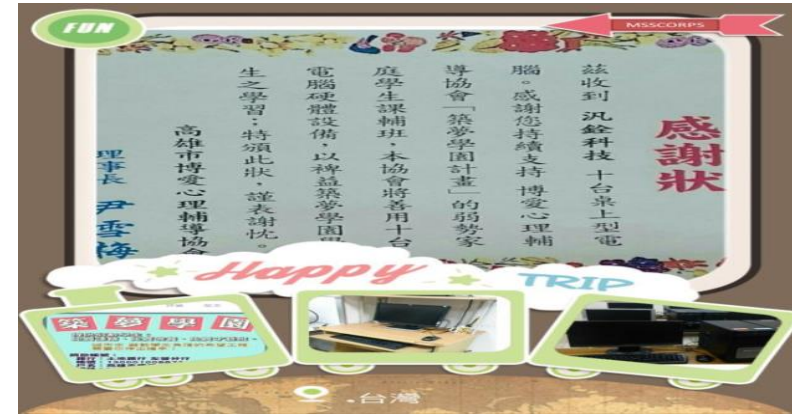 FUN
MSSCORPS
感謝狀
茲收到 汎銓科技 十台桌上型電
腦。感謝您持續支持 博愛心理輔
導協會「築夢學園計畫」的弱勢家
庭學生課輔班，本協會將善用十台
電腦硬體設備，以裨益築夢學園
生之學習；特頒此狀，謹表謝忱。
高雄市博愛心理輔導協會
理事長 尹雪梅
Happy
TRIP
.台灣